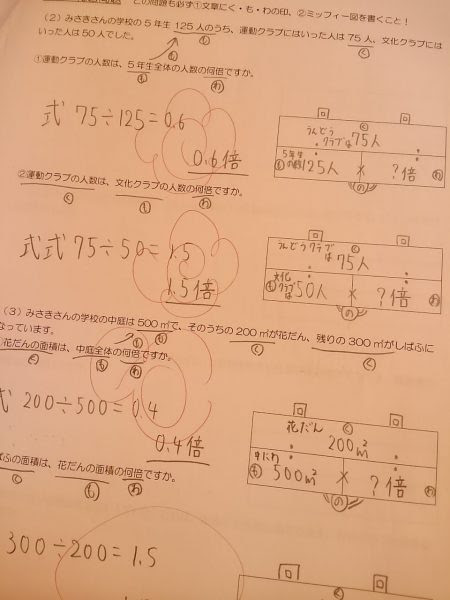 この問題も必ず①文章にく・も・わの印、②ミッフィー図を書くこと！
(2) みさきさんの学校の5年生125人のうち、運動クラブにはいった人は75人、文化クラブには
いった人は50人でした。
も
く
①運動クラブの人数は、5年生全体の人数の何倍ですか。
も
わ
式 75÷125=0.6
0.6倍
回
回
く
うんどうクラブは75人
5年生の数
も
125人
×
?倍
わ
の
②運動クラブの人数は、文化クラブの人数の何倍ですか。
く
も
わ
式式 75÷50=1.5
1.5倍
回
回
うんどうクラブは
く
75人
文化クラブは
も
50人
×
?倍
わ
の
(3) みさきさんの学校の中庭は500㎡で、そのうちの200㎡が花だん、残りの300㎡がしばふに
なっています。
も
く
く
花だんの面積は、中庭全体の何倍ですか。
く
も
わ
式 200÷500=0.4
0.4倍
回
回
花だん
く
200㎡
中にわ
も
500㎡
×
?倍
わ
の
ばふの面積は、花だんの面積の何倍ですか。
く
も
わ
300÷200=1.5
回
回
く